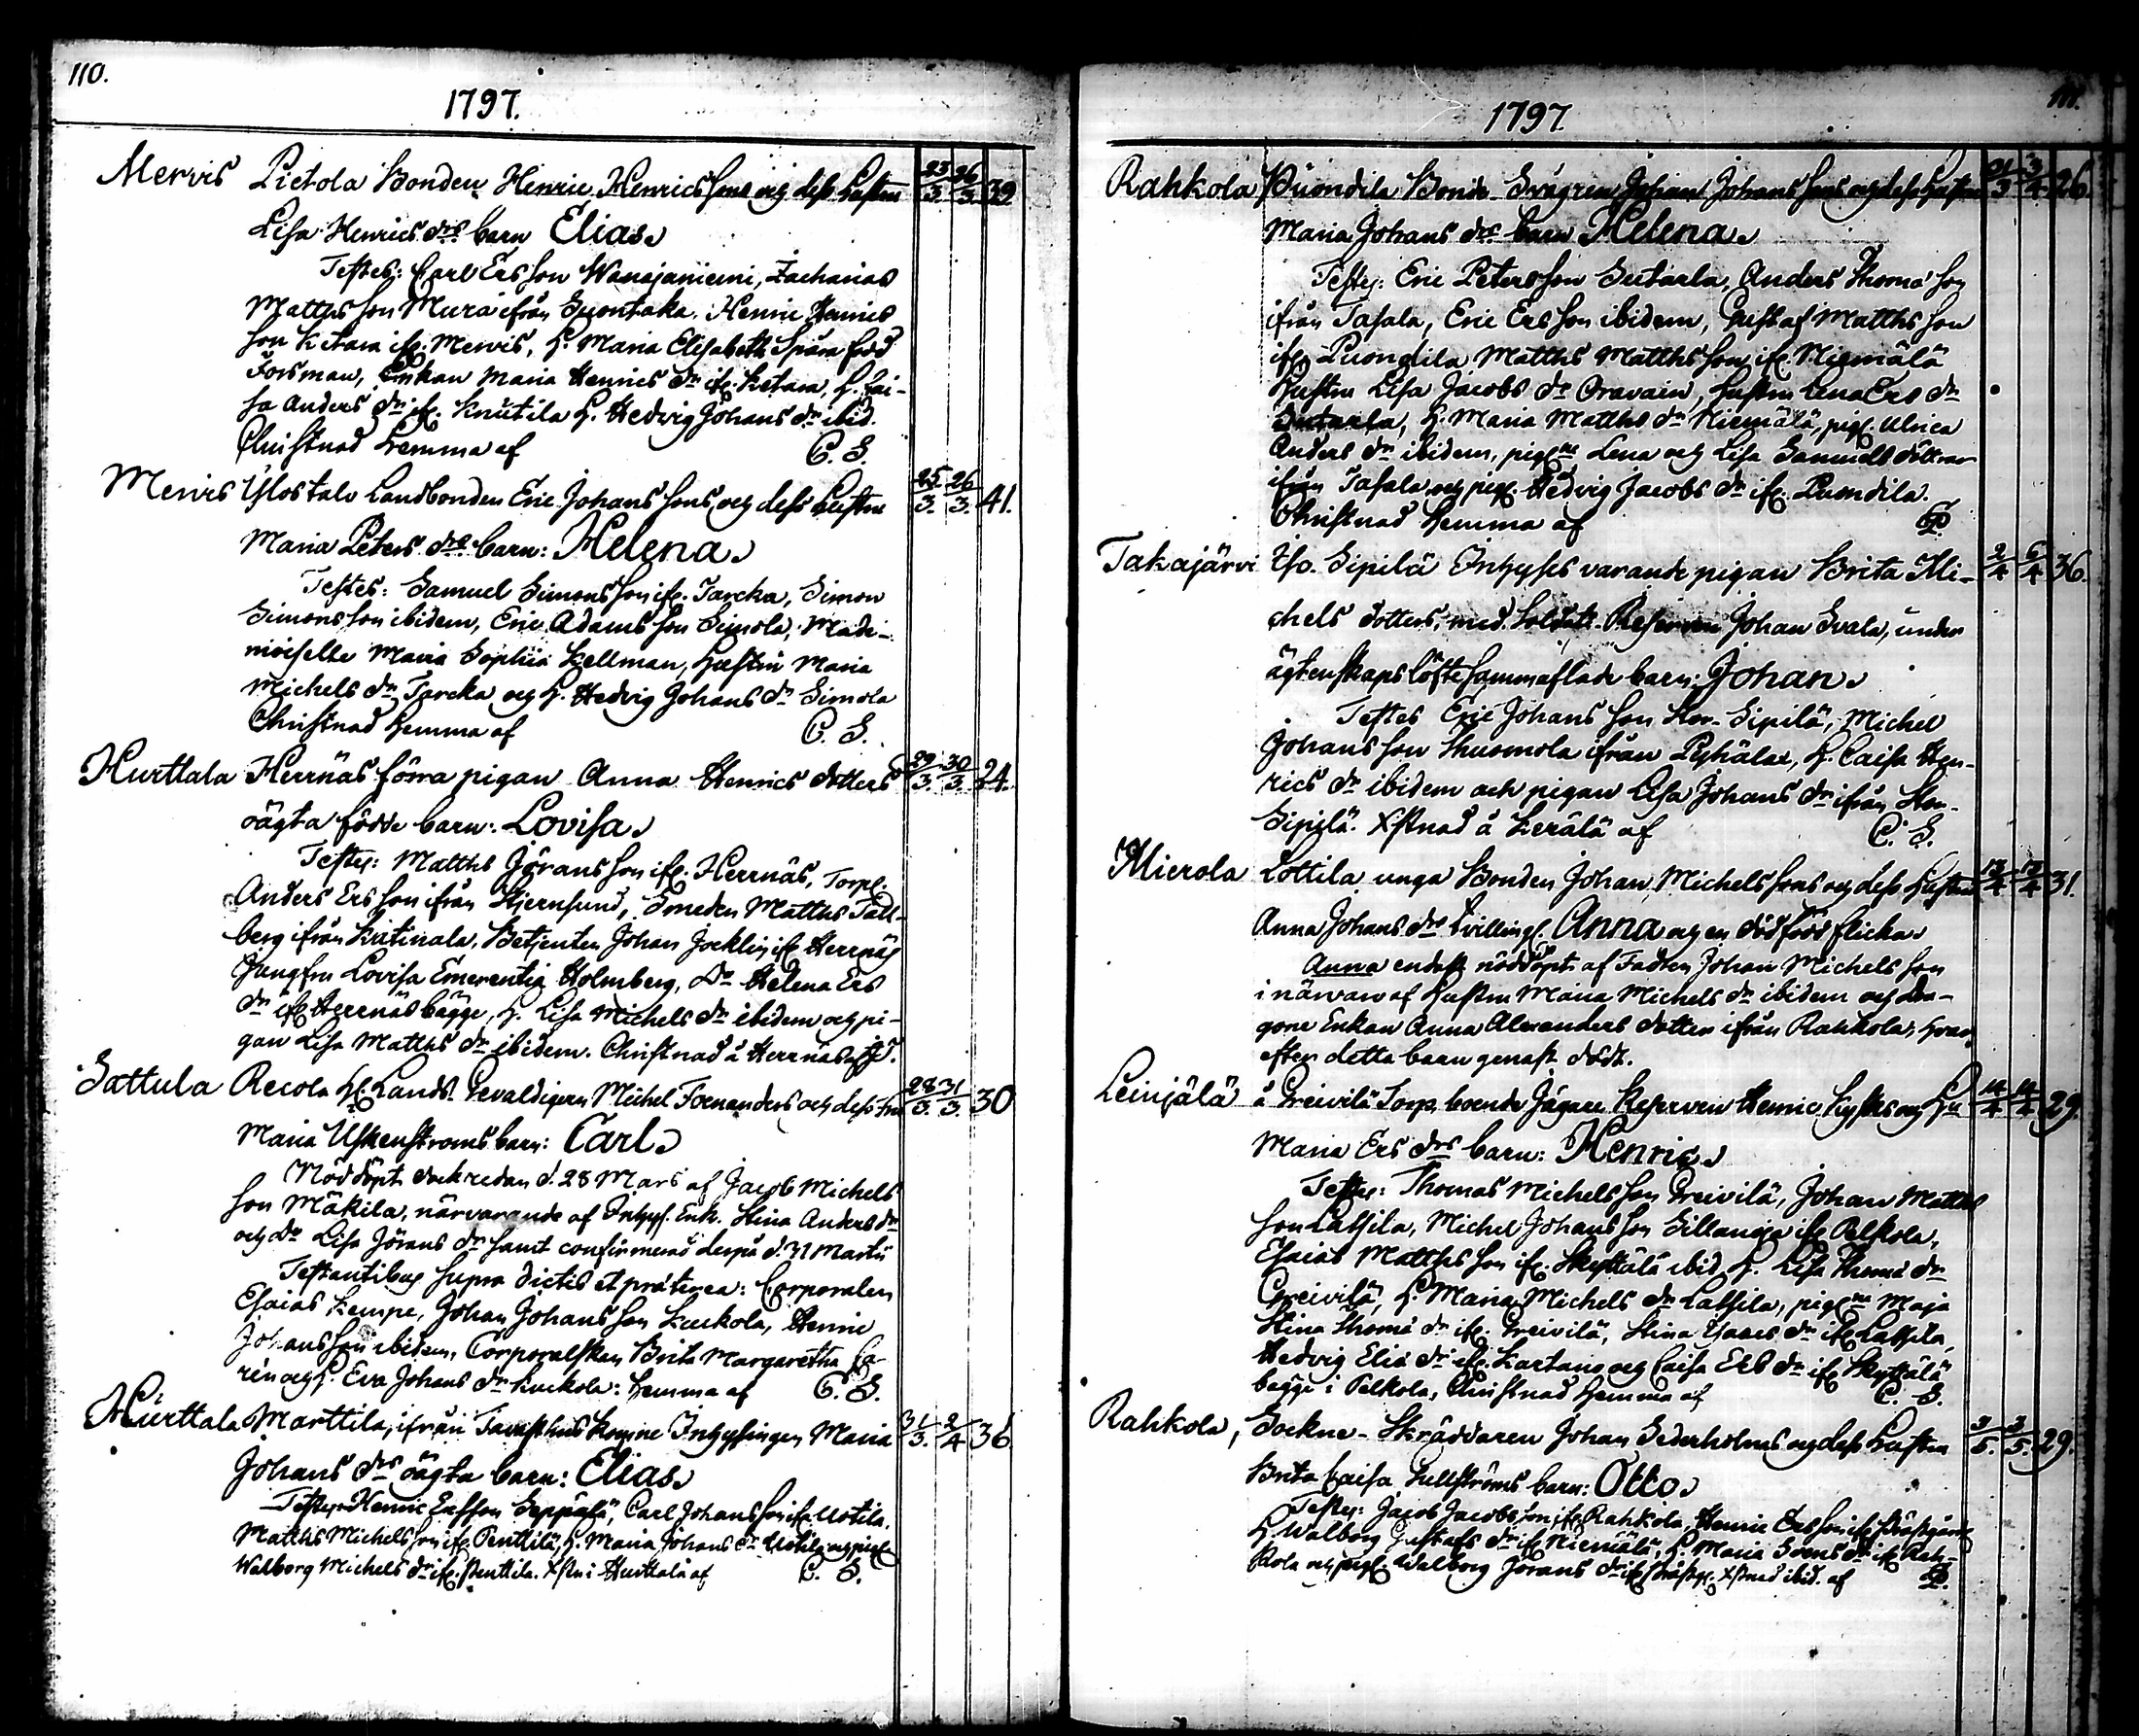 110.
1797.
Mervis Pietola Bonden Henric Henricssons och dess hustru 23/3. 26/3. 39
Lisa Henrics drs barn Elias.
Testes: Carl Ersson Wanajaniemi, Zacharias
Matthsson Mura ifrån Suontaka. Henric Henrics
son Ketara ifr. Mervis, H. Maria Elisabeth Spåra född
Forsman, Enkan Maria Henrics dr ifr. Ketara, H. Cai-
sa Anders dr ifr. Knutila H. Hedvig Johans dr ibid.
Christnad hemma af C. S.
Mervis Ylostalo Landbonden Eric Johanssons och dess hustru 25/3. 26/3. 41.
Maria Peters drs barn: Helena.
Testes: Samuel Simonsson ifr. Jarcka, Simon
Simonsson ibidem, Eric Adamsson Simola, Made-
moiselle Maria Sophia Kellman, hustru Maria
Michels dr Jarcka och H. Hedvig Johans dr Simola
Christnad hemma af C. S.
Hurttala Herrnäs förra pigan Anna Henrics dotters 29/3. 30/3. 24.
oägta födde barn: Lovisa.
Testes: Matths Jöransson ifr. Herrnäs, Torp.
Anders Ersson ifrån Stjernsund, Smeden Matths Tall-
berg ifrån Katinala, Betjenten Johan Jocklin ifr Herrnäs
Jungfru Lovisa Emerentia Holmberg, Do Helena Ers
dr ifr Herrnäs bägge, H. Lisa Michels dr ibidem och pi-
gan Lisa Matths dr ibidem. Christnad å Herrnäs af
Sattula Recola Lands Gevaldigern Michel Foenanders och dess fru 28/3. 31/3. 30
Maria Uskenstroms barn: Carl.
Nöddöpt dock redan d. 28 Mars af Jacob Michels
son Mäkila, närvarande af Inhys. Enk. Stina Anders dr
och Do Lisa Jörans dr samt confirmerad derpå d. 31 Martii
Testantibus supra dictis et præterea: Corporalen
Esaias Kempe, Johan Johansson Kuckola, Henric
Johansson ibidem, Corporalskan Brita Margaretha Ca-
rén och H. Eva Johans dr Kuckola: hemma af C. S.
Hurttala Marttila, ifrån Tavasthus komne Inhysingen Maria 31/3. 2/4 36
Johans drs oägta barn: Elias.
Testes: Henric Ersson Seppälä, Carl Johansson ifr. Uotila,
Matths Michelsson ifr. Penttilä, H. Maria Johans dr Uotila och pig.
Walborg Michels dr ifr. Penttila. Xstn i Hurttala af C. S.
111.
1797
Rahkola Puondila Bonde Svågren Johan Johanssons och dess hustru 31/3 3/4 26.
Maria Johans drs barn Helena.
Testes: Eric Petersson Sutarla, Anders Thomæson
ifrån Tasala, Eric Ersson ibidem, Gustaf Matthsson
ifr. Puondila Matths Matthsson ifr. Niemälä
hustru Lisa Jacobs dr Oravain, hustru Lena Ers dr
Sutarla, H. Maria Matths dr Niemälä, pig. Ulrica
Anders dr ibidem, pigorne Lena och Lisa Samuels döttrar
ifrån Tasala och pig. Hedvig Jacobs dr ifr. Puondila.
Christnad hemma af
Takajärvi Iso-Sipilä Inhyses varande pigan Brita Mi- 2/4 6/4 36.
chels dotters, med Soldats Reserven Johan Svala, under
ägtenskaps löfte sammaflade barn: Johan.
Testes Eric Johansson Stor-Sipilä, Michel
Johansson Thuomola ifrån Pyhälax, H. Caisa Hen-
rics dr ibidem och pigan Lisa Johans dr ifrån Stor-
Sipilä. Xstnad å Kerälä af C. S.
Mierola Lottila unga Bonden Johan Michelssons och dess hustru 13/4 13/4 31.
Anna Johans drs tvilling. Anna och en dödföd flicka.
Anna endast nöddöpt af Fadren Johan Michelsson
i närwaro af hustru Maria Michels dr ibidem och Dra-
gone Enkan Anna Alexanders dotter ifrån Rahkola, hvar-
efter detta barn genast dödt.
Leinjälä å Greivilä Torp boende Jägare Reserven Henric Kyhls och Hu 14/4 14/4 29.
Maria Ers drs barn: Henric.
Testes: Thomas Michelsson Greivilä, Johan Matths
son Lassila, Michel Johansson Sillanpä ifr Pelkola,
Esaias Matthsson ifr. Skyttälä ibid. H. Lisa Thomæ dr
Greivilä, H. Maria Michels dr Lassila, pigorne Maja
Stina Thomæ dr ifr. Greivilä, Stina Isaacs dr ifr Lassila,
Hedvig Eliæ dr ifr. Kartano och Caisa Ers dr ifr Skyttälä
bägge i Pelkola, Christnad hemma af C. S.
Rahkola, Sockne-Skräddaren Johan Sederholms och dess hustru 3/5. 3/5. 29.
Brita Caisa Hellströms barn: Otto.
Testes: Jacob Jacobsson ifr. Rahkola, Henric Ersson ifr. Prästgård
H. Walborg Gustafs dr ifr Niemälä, H. Maria Svens dr ifr Rah-
kola och pig. Walborg Jörans dr ifr Prästg. Xstnad ibid. af